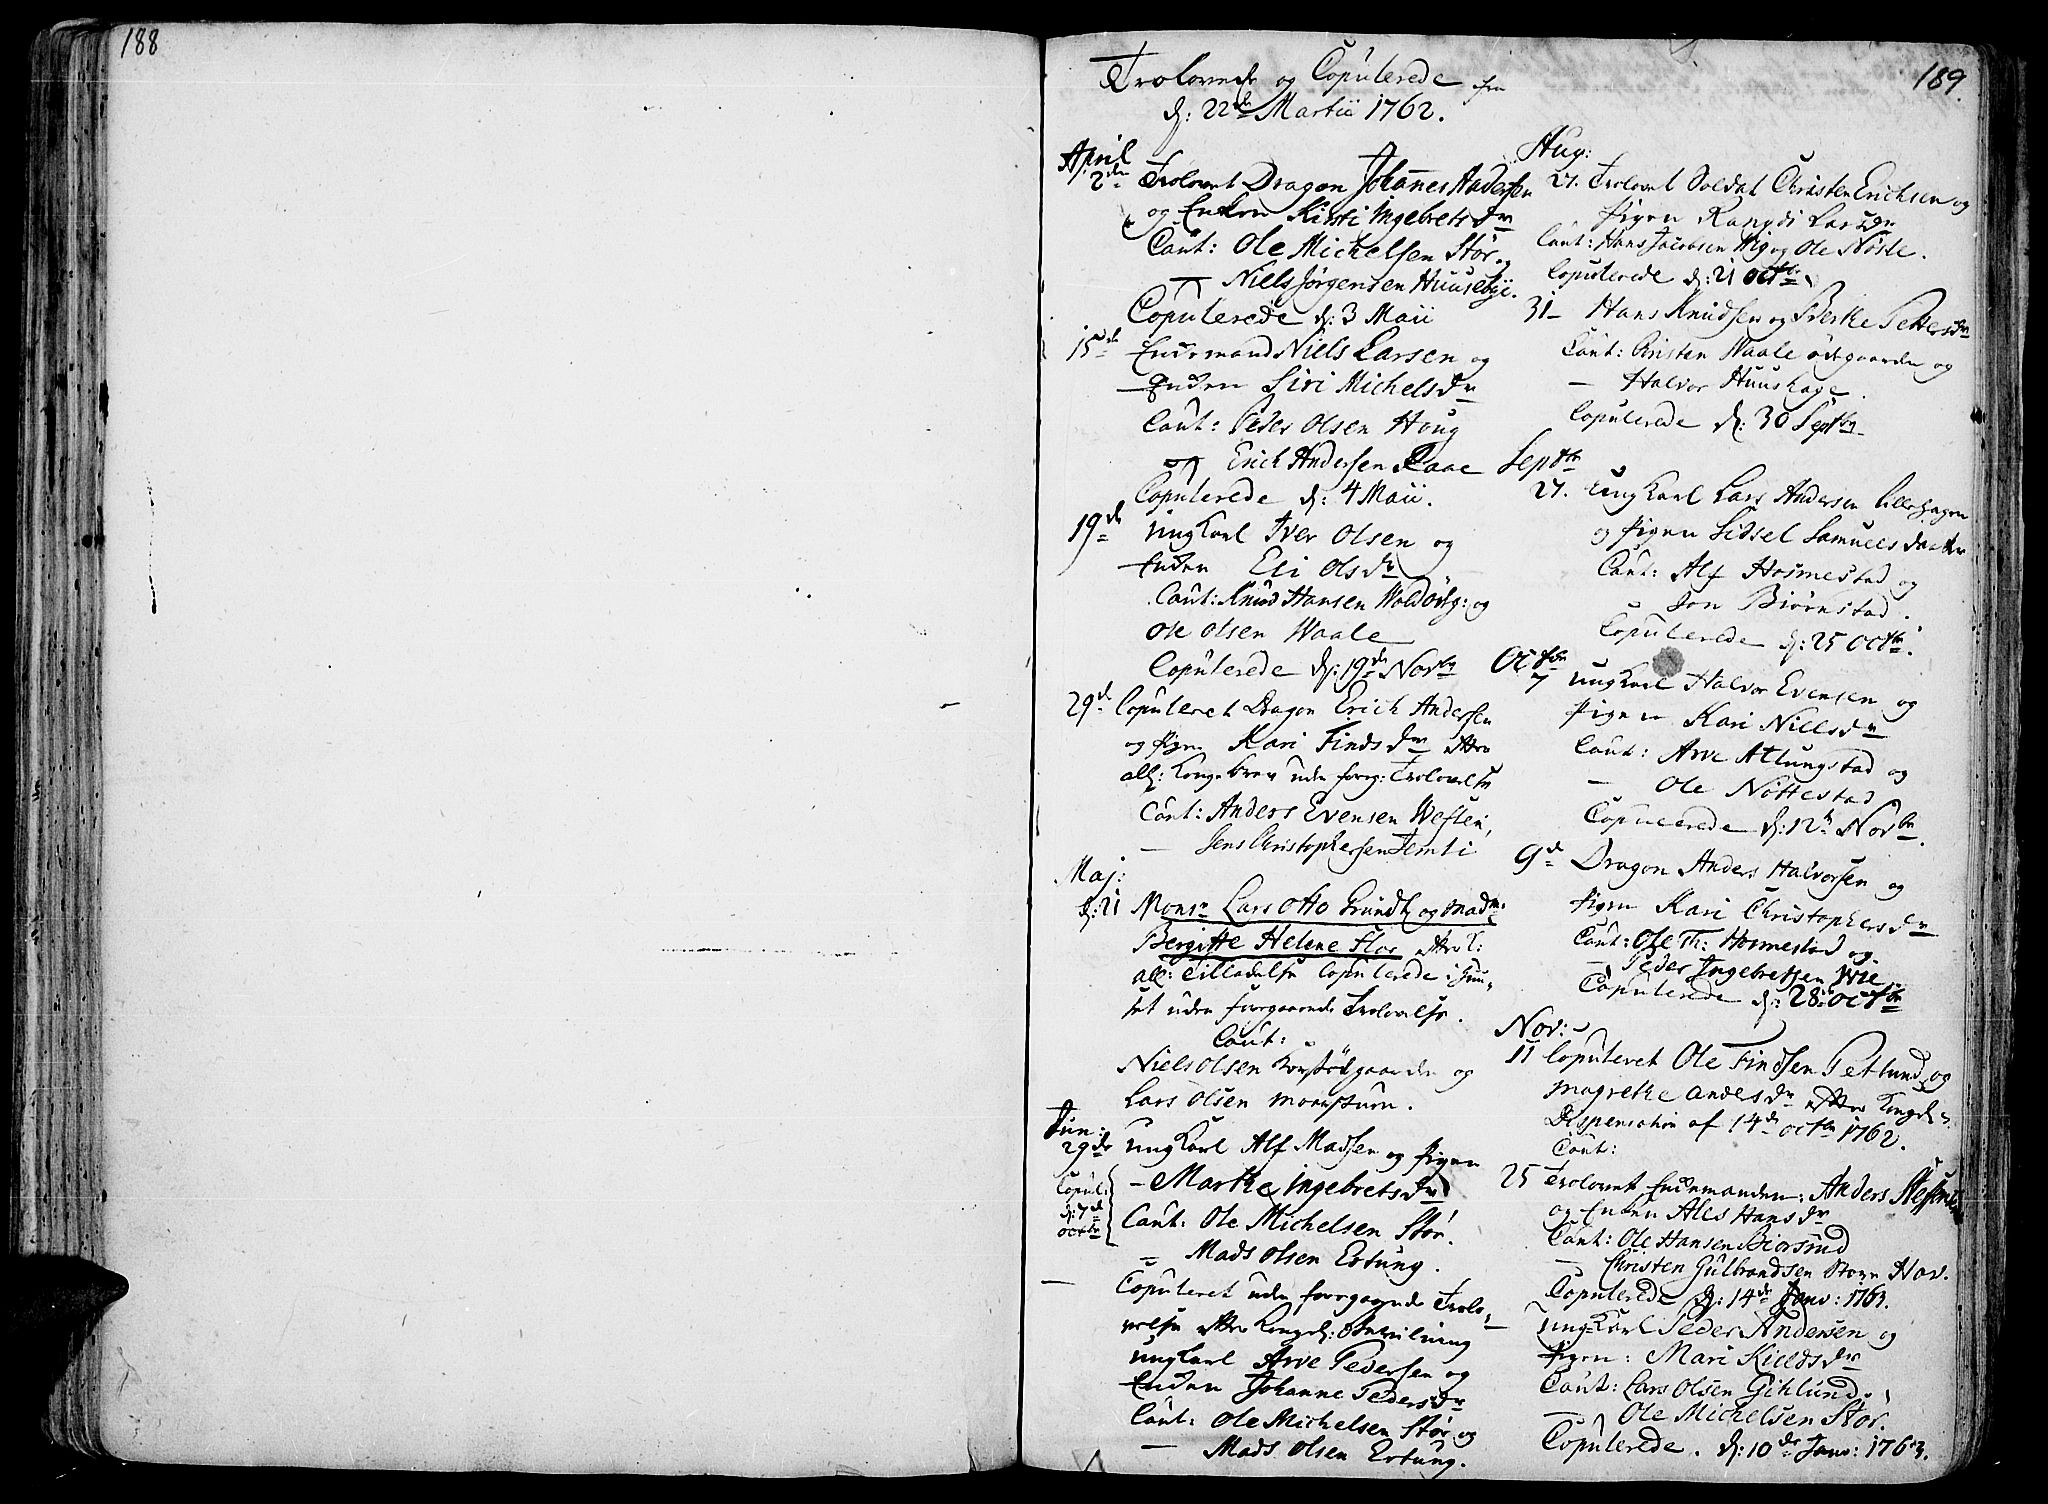 188
189.
Trolovede og Copulerede fra
d: 22de Martii 1762.
April
2den Trolovet Dragon Johannes Andersen
og Enken Kirsti Ingebretsdr
Caut: Ole Michelsen Stör og
— Niels Jörgensen Huusebye.
Copulerede d: 3 Maii
15de Enkemand Niels Larsen og
Enken Siri Michelsdr
Caut: Peder Olsen Houg
— Erich Andersen Raae
Copulerede d: 4 Maii.
19de Ungkarl Iver Olsen og
Enken Eli Olsdr
Caut: Knud Hansen Woldödg: og
Ole Olsen Waale
Copulerede d: 19de Novbr
29de Copuleret Dragon Erich Andersen
og Pigen Kari Findsdr efter
all: Kongebrev uden forg: Trolovelse
Caut: Anders Evensen Westen,
— Jens Christophersen Jemti
Maj:
d: 21 Monsr Lars Otto Grundt og Madme
Bergitte Helene Flor efter
all: Tilladelse Copulerede i Huu-
set uden foregaaende Trolovelse.
Caut:
Niels Olsen ödegaarden og
Lars Olsen
Jun:
29de Ungkarl Alf Madsen og Pigen
Copul: d: 7de octbr
— Marthe Ingebretsdr
Caut: Ole Michelsen Stör.
— Mads Olsen Ertung.
— Copuleret uden foregaaende Trolo-
velse efter Kongel: Bevilning
Ungkarl Arve Pedersen og
Enken Johanne Pedersdr
Caut: Ole Michelsen Stör og
— Mads Olsen Ertung.
Aug:
27. Trolovet Soldat Christen Erichsen og
Pigen Rangdi Larsdr
Caut: Hans Jacobsen Wig og Ole Nöste.
Copulerede d: 21 octbr
31— Hans Knudsen og Berthe Pettersdr
Caut: Christen Waale ödegaarden og
— Halvor Huushage.
Copulerede d: 30 Septbr
Septbr
27. Ungkarl Lars Andersen Lillehagen
og Pigen Sidsel Samuelsdaatter
Caut: Alf Hosmestad og
Jon Biörnstad.
Copulerede d: 25 octbr.
Octbr
7 Ungkarl Halvor Evensen og
Pigen Kari Nillsdr
Caut: Arve Atlungstad og
— Ole Nöttestad
Copulerede d: 12te Novbr.
9de Dragon Anders Halvorsen og
Pigen Kari Christophersdr
Caut: Ole Th: Hosmestad og
— Peder Ingebretsen Wie
Copulerede d: 28 octbr
Nov:
11 Copuleret Ole Findsen Petlund og
Magrethe Andesdr efter Kongel:
Dispensation af 14de octbr 1762.
Caut:
25 Trolovet Enkemanden: Anders
og Enken Ales Hansdr
Caut: Ole Hansen Biorsrud
— Christen Gulbrandsen Hov.
Copulerede d: 14de Janv: 1763.
Ungkarl Peder Andersen og
Pigen: Mari Kieldsdr
Caut: Lars Olsen Gihlund.
— Ole Michelsen Stör.
Copulerede. d: 10de Janv: 1763.